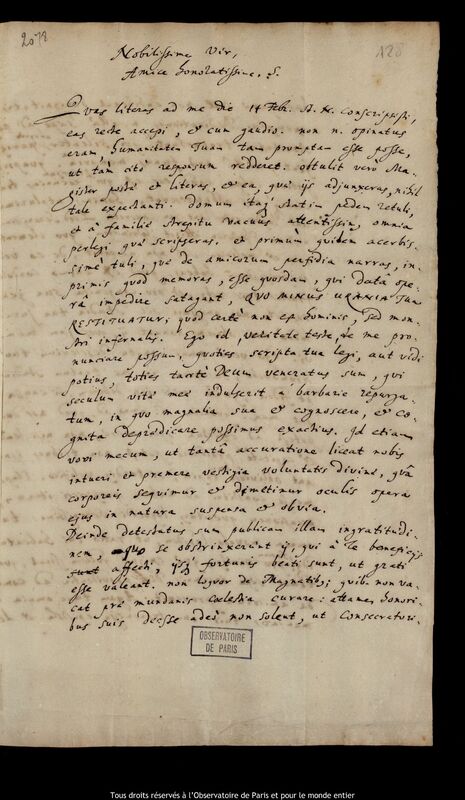 2078
128
Nobilissime Vir,
Amice honoratissime, S.
Quas literas ad me die 14 Febr. st. N. conscripsisti,
eas recte accepi, & cum gaudio. non n. opinatus
eram, humanitatem Tuam tam promptam esse posse,
ut tàm citò responsum redderet. obtulit verò Ma-
gister postæ et literas, & ea, quæ ijs adjunxeras, nihil
tale expectanti. domum itaq; statim pedem retuli,
et à familiæ strepitu vacuus attentissimè omnia
perlegi quæ scripseras. et primùm quidem acerbis-
simè tuli, quæ de amicorum perfidia narras, in-
primis quod memoras, esse quosdam, qui datâ ope-
râ impedire satagant, QUO MINUS URANIA TUA
RESTITUATUR; quod certè non est hominis, sed mon-
stri infernalis. Ego id, veritate teste, de me pro-
nunciare possum, quoties scripta tua legi, aut vidi
potius, toties tacitè Deum veneratus sum, qui
seculum vitæ meæ indulserit à barbarie repurga-
tum, in quo magnalia sua & cognoscere, & co-
gnita deprædicare possimus exactius. Id etiam
vovi mecum, ut tantâ accuratione liceat nobis
intueri et premere vestigia voluntatis divinæ, quâ
corporeis sequimur & dimetimur oculis opera
ejus in natura suspensa & obvia.
Deinde detestatus sum publicam illam ingratitudi-
nem, quâ se obstrinxerunt ij, qui à Te beneficijs
affecti, ijsq; fortunis beati sunt, ut grati
esse valeant. non loquor de Magnatibq; quib. non va-
cat præ mundanis cœlestia curare: attamen honori-
bus suis deesse adeò non solent, ut Consecratori-
OBSERVATOIRE
DE PARIS
Tous droits réservés à l'Observatoire de Paris et pour le monde entier